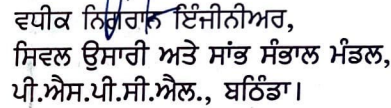 ਵਧੀਕ ਨਿਗਰਾਨ ਇੰਜੀਨੀਅਰ,
ਸਿਵਲ ਉਸਾਰੀ ਅਤੇ ਸਾਂਭ ਸੰਭਾਲ ਮੰਡਲ,
ਪੀ.ਐਸ.ਪੀ.ਸੀ.ਐਲ., ਬਠਿੰਡਾ।